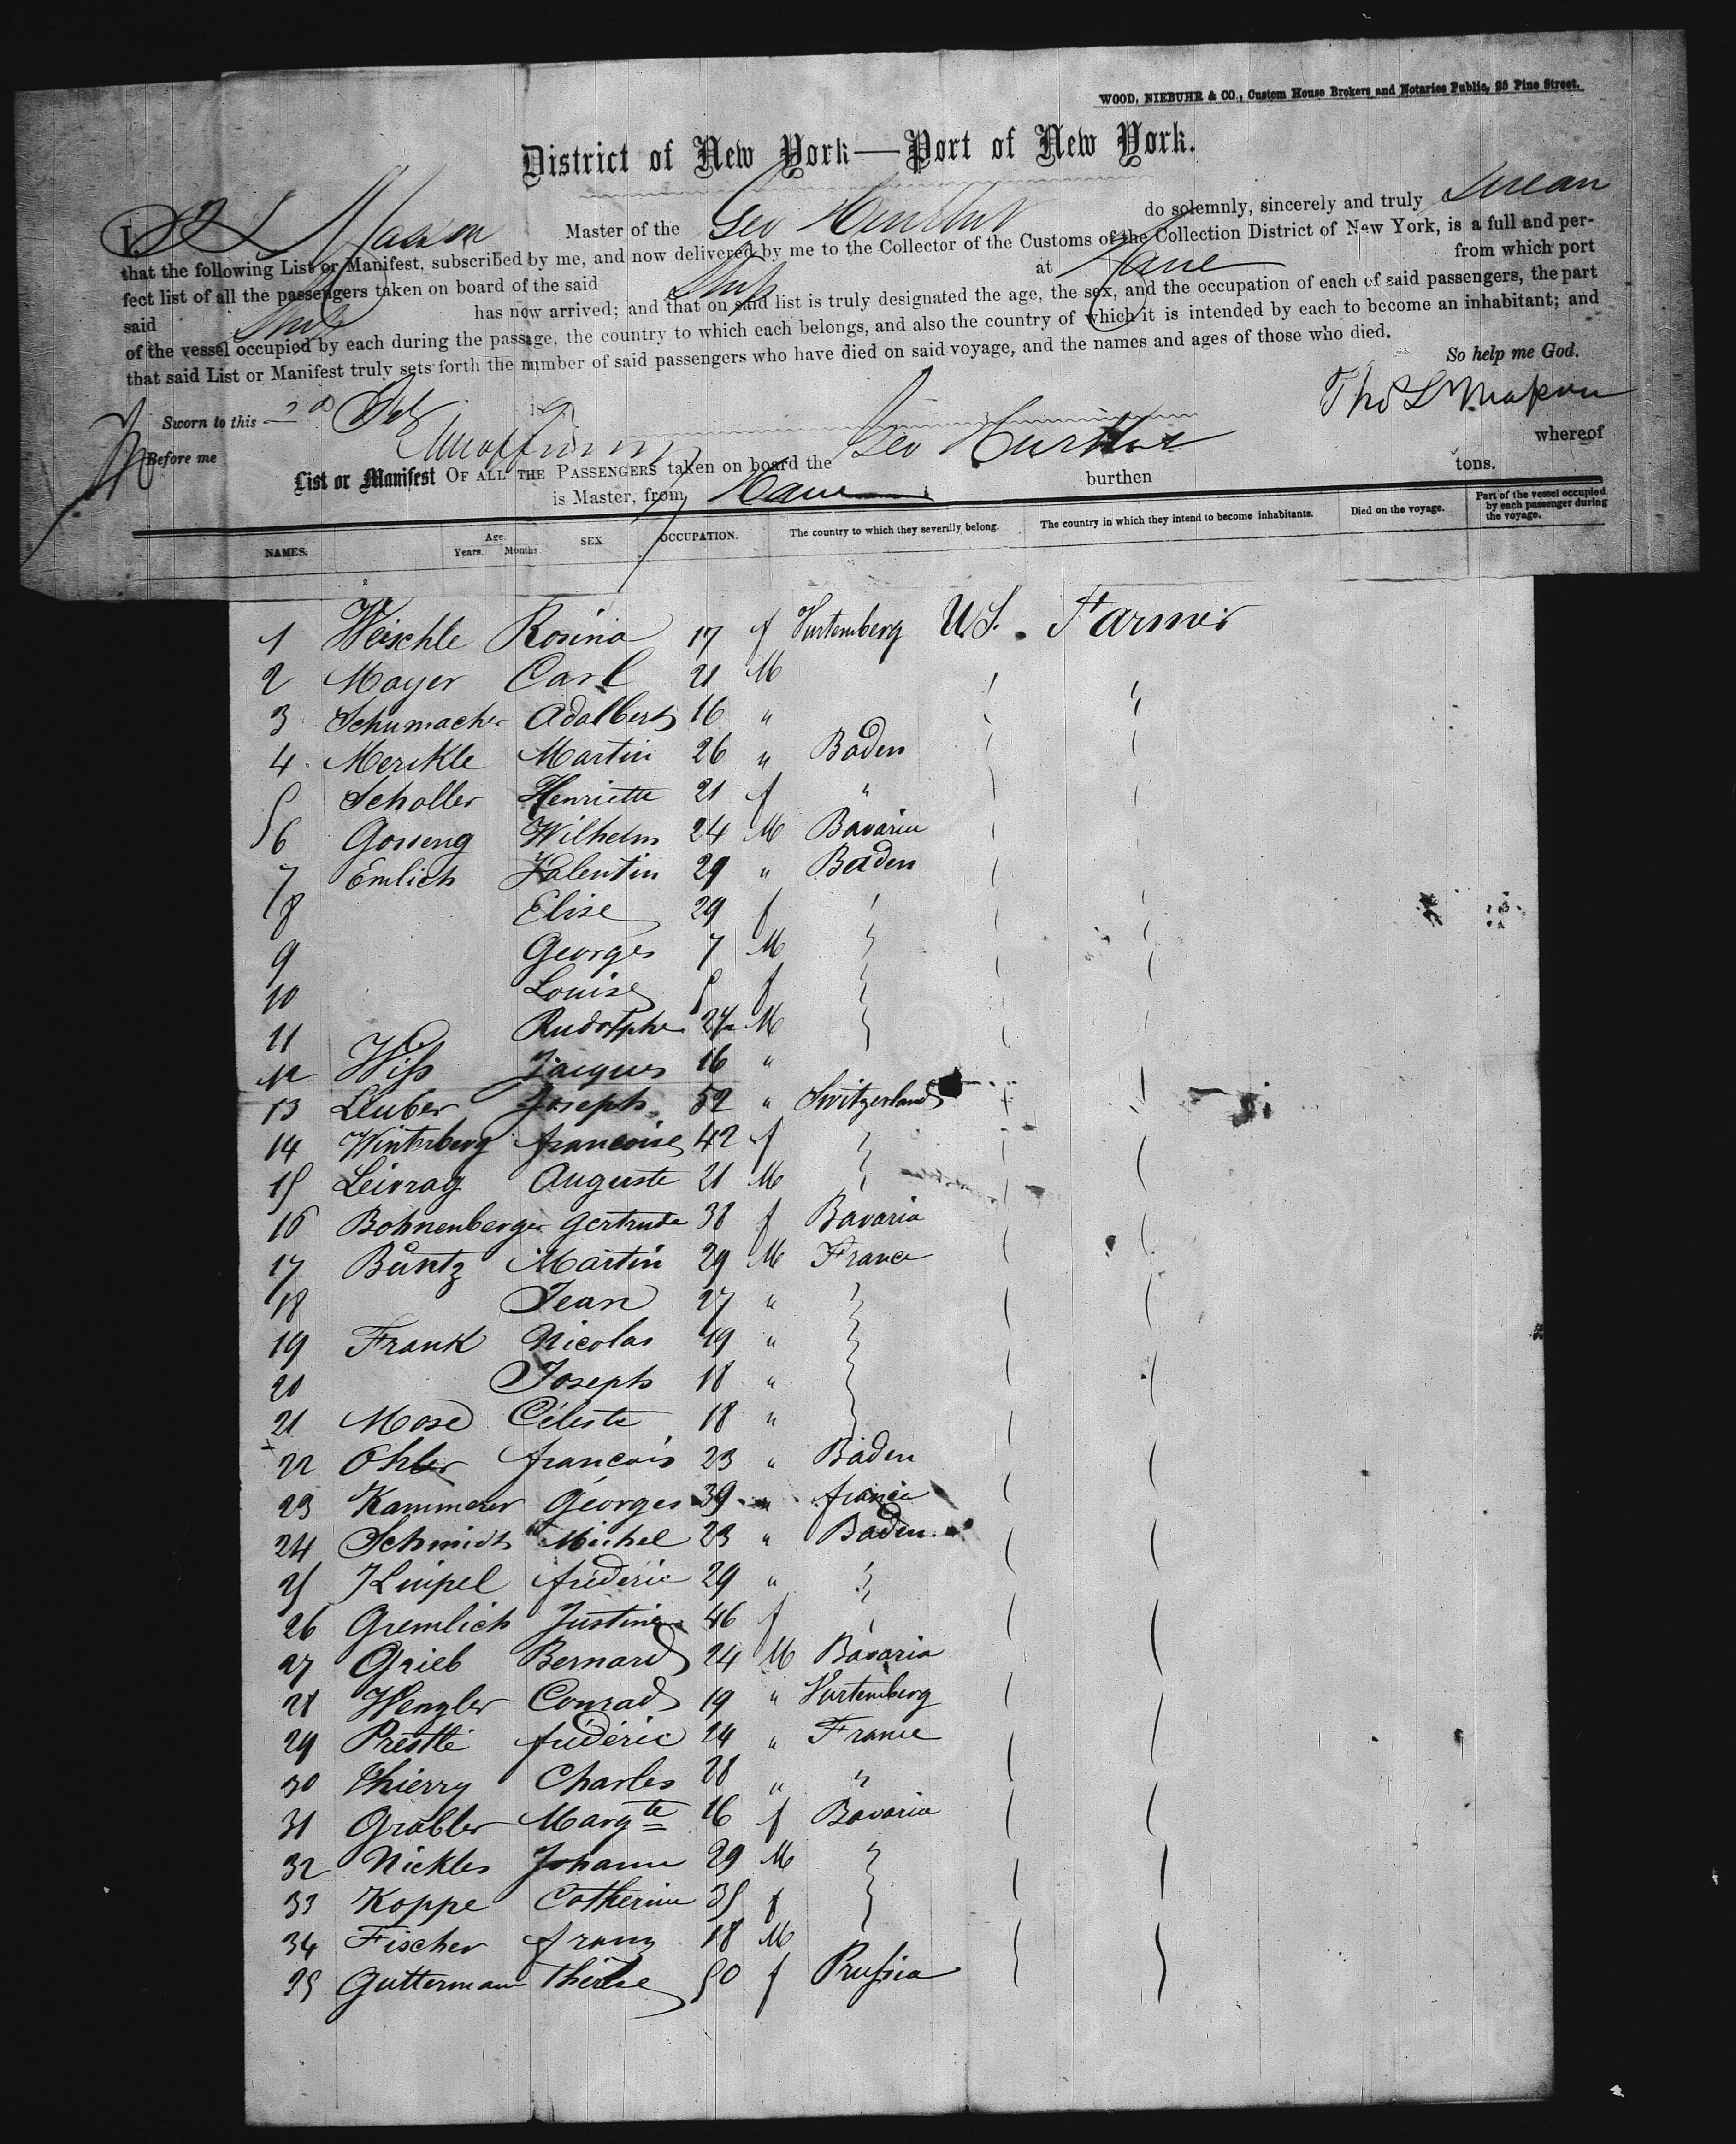 WOOD, NIEBUHR & CO., Custom House Brokers and Notaries Public, 25 Pine Street.
District of New York—Port of New York.
I, T L Mason Master of the Geo Hurlbut do solemnly, sincerely and truly swear
that the following List or Manifest, subscribed by me, and now delivered by me to the Collector of the Customs of the Collection District of New York, is a full and per-
fect list of all the passengers taken on board of the said Ship at Havre from which port
said Ship has now arrived; and that on said list is truly designated the age, the sex, and the occupation of each of said passengers, the part
of the vessel occupied by each during the passage, the country to which each belongs, and also the country of which it is intended by each to become an inhabitant; and
that said List or Manifest truly sets forth the number of said passengers who have died on said voyage, and the names and ages of those who died.
So help me God.
Sworn to this 2d 18 Thos L Mason
Before me
List or Manifest OF ALL THE PASSENGERS taken on board the Geo Hurlbut whereof
is Master, from Havre burthen tons.
NAMES. Age. Years. Months SEX OCCUPATION. The country to which they severally belong. The country in which they intend to become inhabitants. Died on the voyage. Part of the vessel occupied by each passenger during the voyage.
1 Weischle Rosina 17 f Vurtemberg U.S. Farmer
2 Mayer Carl 21 M
3 Schumacher Adalbert 16 "
4 Merckle Martin 26 " Baden
5 Scholler Henriette 21 f "
6 Gosseng Wilhelm 24 M Bavaria
7 Emlich Valentin 29 " Baden
8 Elise 29 f
9 Georges 7 M
10 Louise 5 f
11 Rudolphe M
12 Wiss Jacques 16 "
13 Leuber Joseph 52 " Switzerland
14 Winterberg francoise 42 f
15 Leivrag Auguste 21 M
16 Bohnenberger Gertrude 38 f Bavaria
17 Buntz Martin 29 M France
18 Jean 27 "
19 Frank Nicolas 19 "
20 Joseph 18 "
21 Mose Céleste 18 "
22 Ohler francois 23 " Baden
23 Kammerer Georges 39 " france
24 Schmidt Michel 23 " Baden
25 Kuipel frédéric 29 "
26 Gremlich Justine 46 f
27 Grieb Bernard 24 M Bavaria
28 Wengler Conrad 19 " Vurtemberg
29 Prestle frédéric 24 " France
30 Thierry Charles 28 " "
31 Grabler Margte 16 f Bavaria
32 Nickles Johann 29 M
33 Koppe Catherine 35 f
34 Fischer franz 18 M
35 Guttermann Thérèse 50 f Prussia